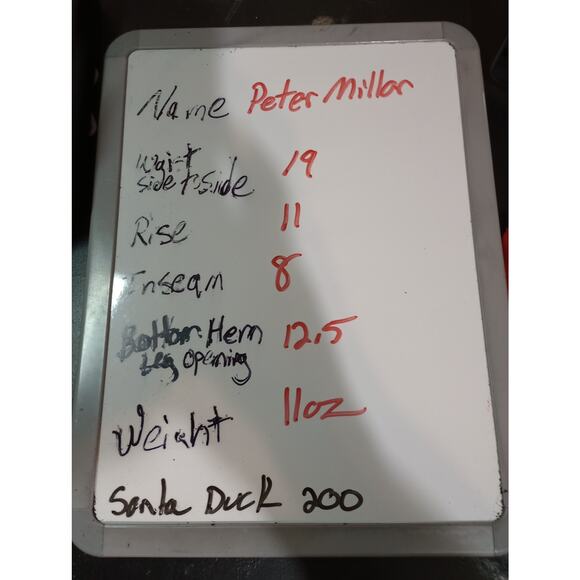 Name Peter Millar
Waist 19
Side to Side
Rise 11
Inseam 8
Bottom Hem 12.5
Leg Opening
Weight 11oz
Santa Duck 200